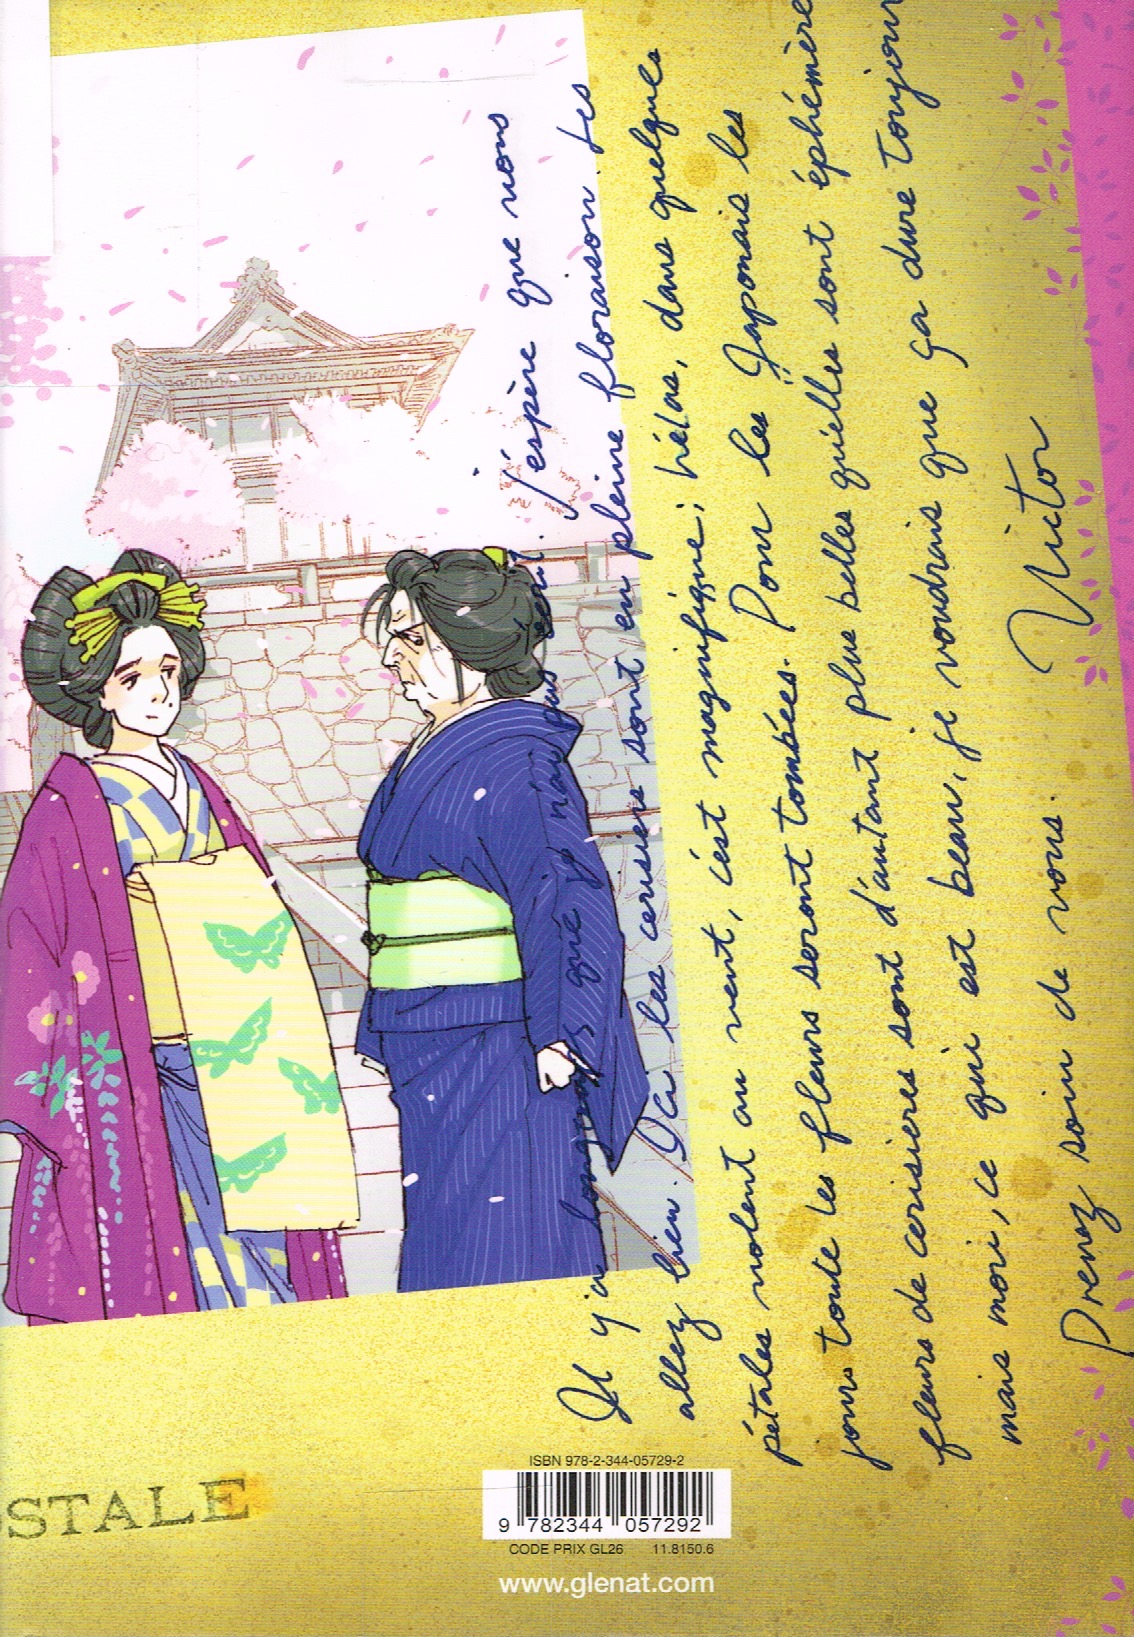 Il y'a longtemps que je n'ai pas écrit. J'espère que vous
allez bien. Ici les cerisiers sont en pleine floraison. Les
pétales volent au vent, c'est magnifique; hélas, dans quelques
jours toute les fleurs seront tombées. Pour les Japonais les
fleurs de cerisieres sont d'autant plus belles qu'elles sont éphémère
mais moi, ce qui est beau, je voudrais que ça dure toujour
Prenez soin de vous. Victor
OSTALE
ISBN 978-2-344-05729-2
9 782344 057292
CODE PRIX GL26 11.8150.6
www.glenat.com